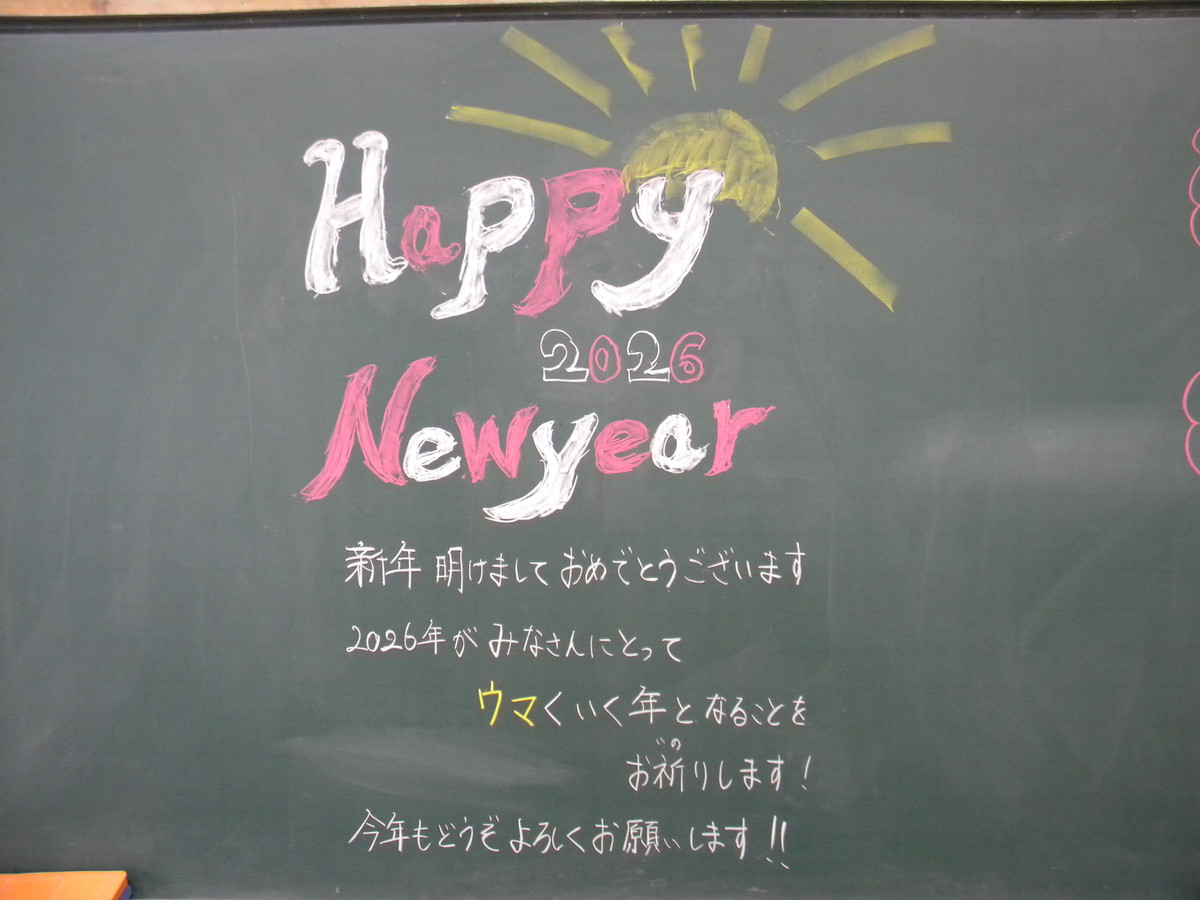 Happy
2026
New year
新年 明けまして おめでとうございます
2026年が みなさんにとって
ウマくいく年となることを
いの
お祈りします!
今年もどうぞよろしくお願いします!!